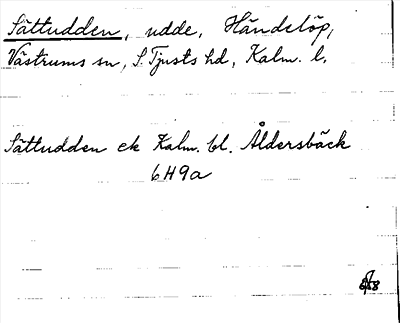 Sättudden, udde, Händelöp,
Västrums sn, S. Tjusts hd, Kalm. l.
Sättudden ek Kalm. bl. Åldersbäck
6H9a